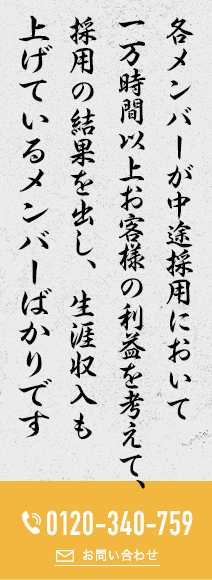 各メンバーが中途採用において
一万時間以上お客様の利益を考えて、
採用の結果を出し、生涯収入も
上げているメンバーばかりです
0120-340-759
お問い合わせ